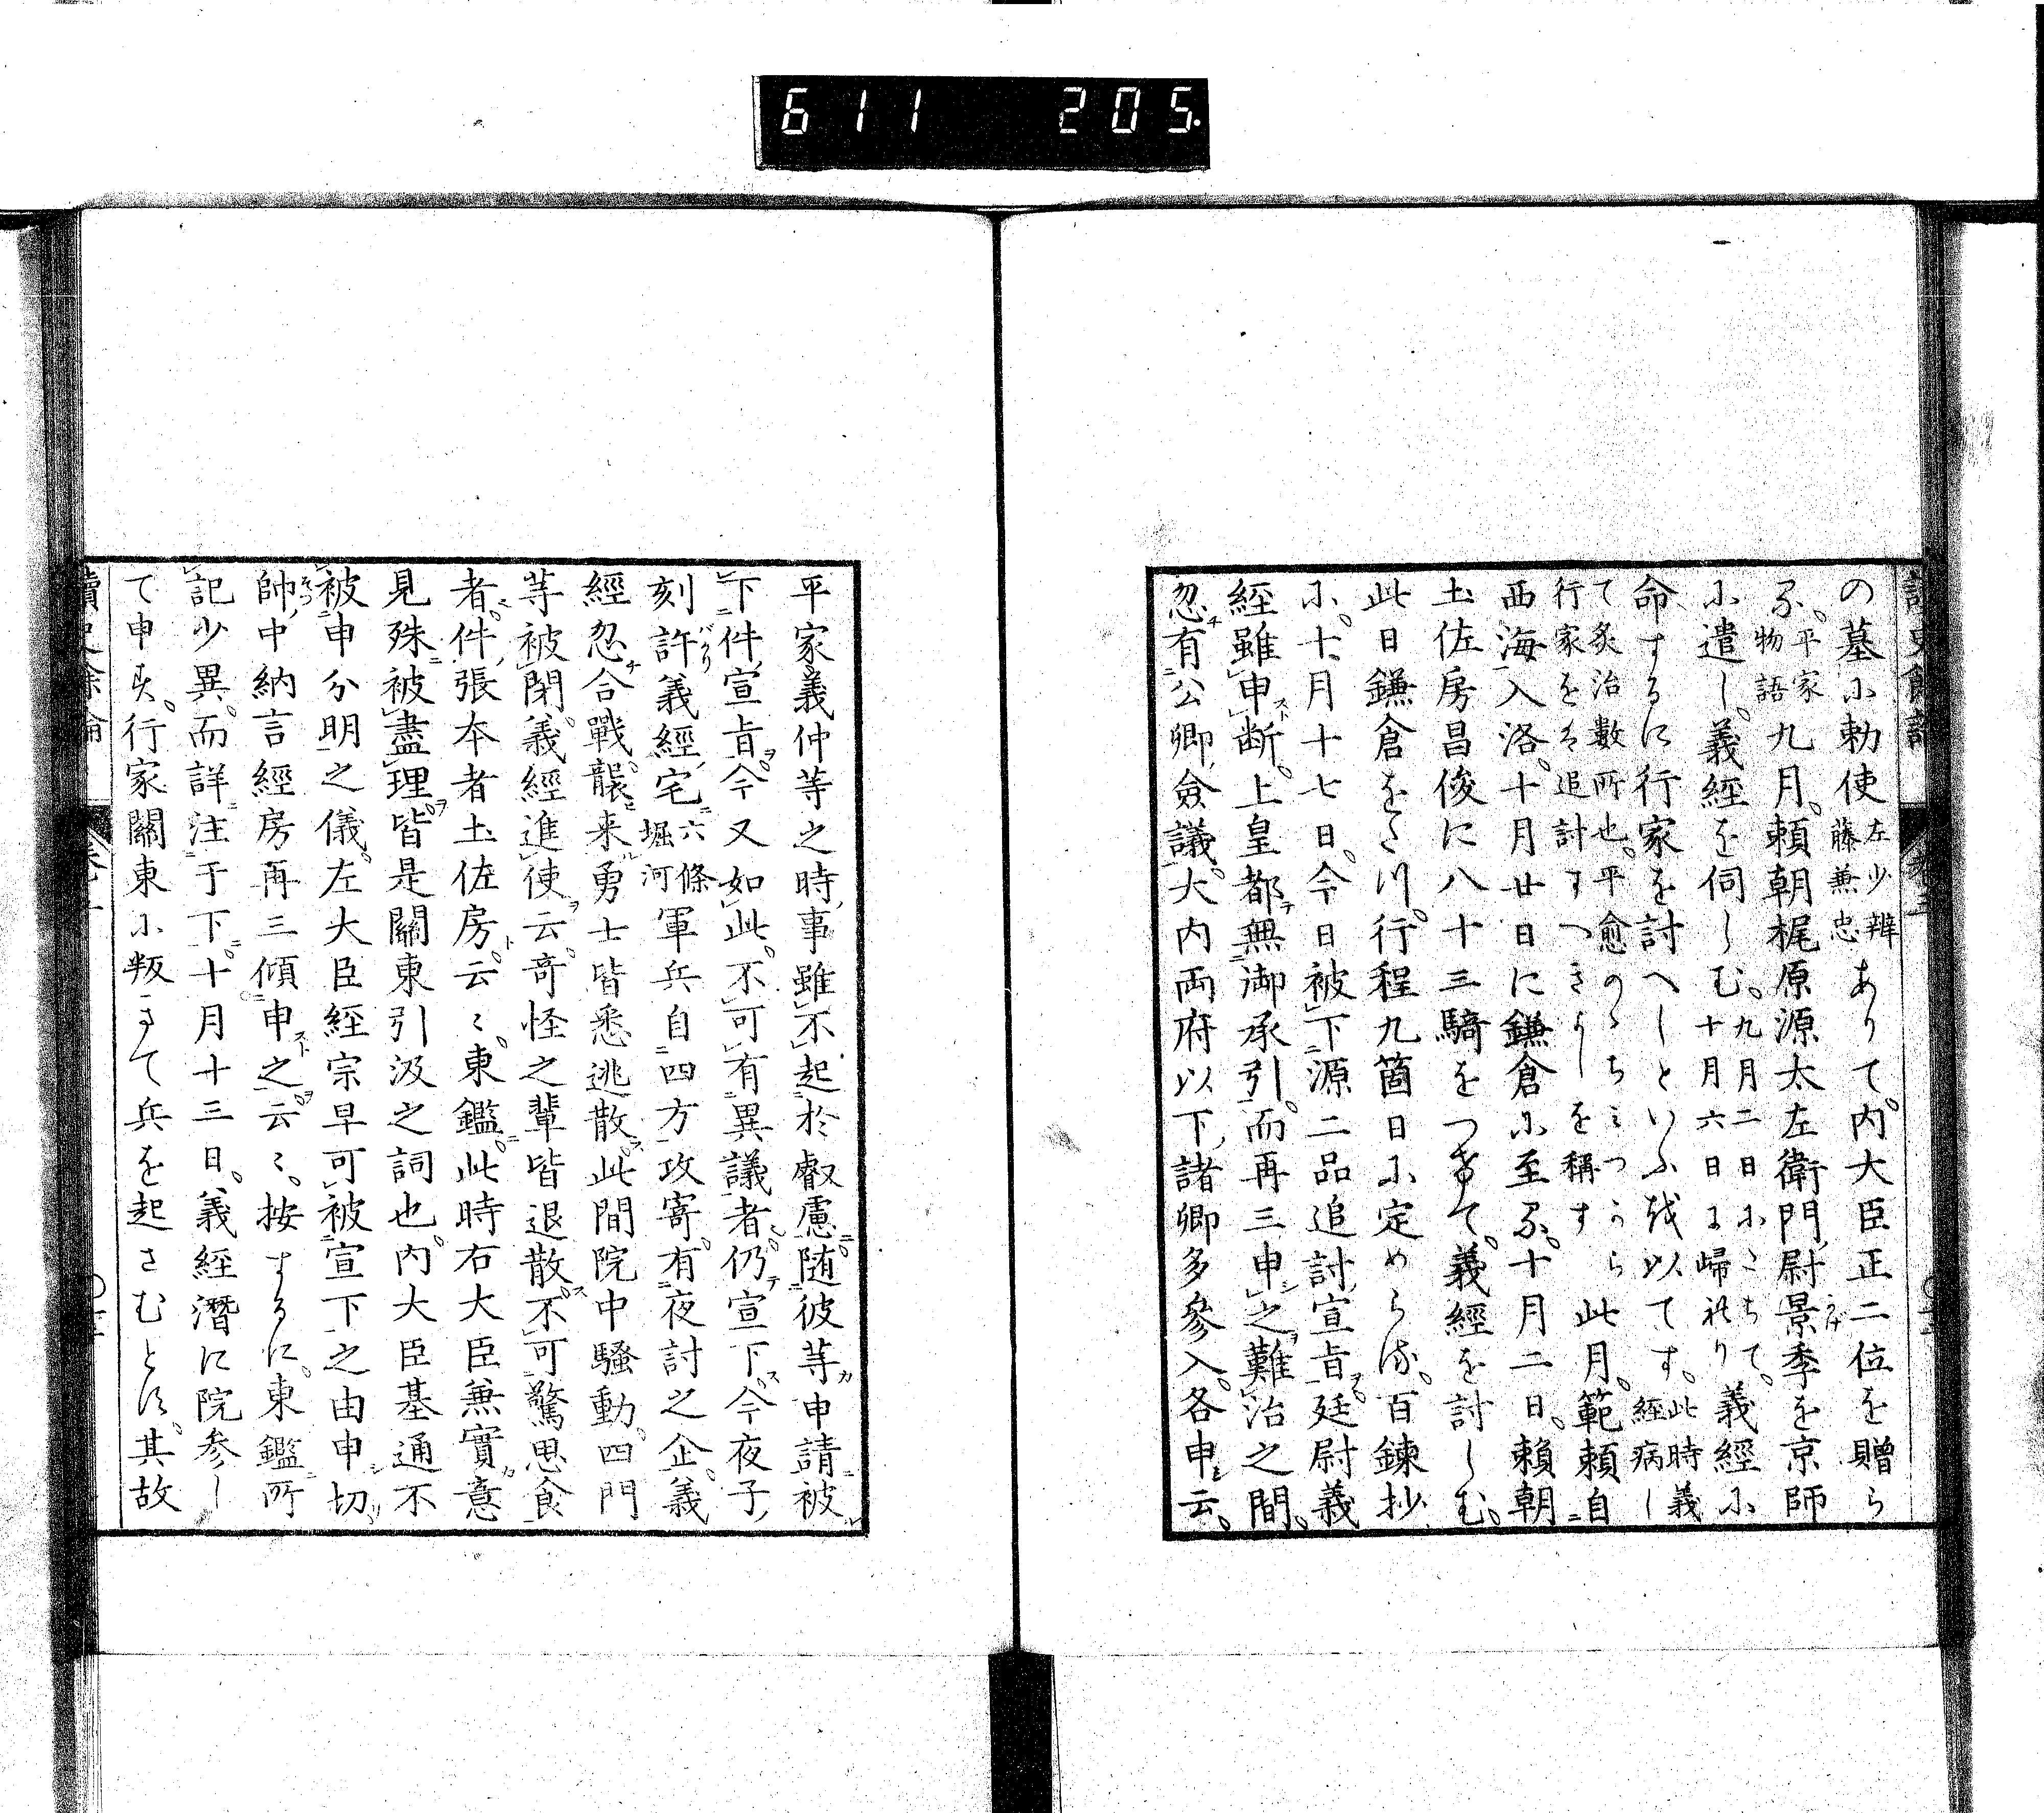 611 205.
の墓に勅使左少辨藤兼忠ありて。内大臣正二位を贈ら
る。平家物語九月。頼朝梶原源太左衛門尉景季を京師
に遣し。義經を伺しむ。九月二日にこちて。十月六日に歸れり義經に
命するに行家を討へしといふ越以てす。此時義經病し
て炙治數所也。平愈のゝちみつから行家をは追討すへきよしを稱す此月。範頼自
西海入洛。十月廿日に鎌倉に至る。十月二日。頼朝
土佐房昌俊に八十三騎をつけて。義經を討しむ。
此日鎌倉をたつ。行程九箇日に定めらる。百錬抄
に。十月十七日。今日被下源二品追討宣旨。廷尉義
經雖申断。上皇都無御承引。而再三申之難治之間。
忽有公卿僉議。大内両府以下。諸卿多參入。各申云。
平家義仲等之時。事雖不起於叡慮。随彼等申請被
下件宣旨。今又如此。不可有異議者。仍宣下。今夜子
刻許義經宅六條堀河軍兵自四方攻寄。有夜討之企。義
經忽合戰。襲来勇士皆悉逃散。此間院中騒動。四門
等被閉。義經進使云。奇怪之輩皆退散。不可驚思食
者。件張本者土佐房云〻。東鑑。此時右大臣兼實意
見殊被盡理。皆是關東引汲之詞也。内大臣基通不
被申分明之儀。左大臣經宗早可被宣下之由申切。
帥中納言經房再三傾申之云〻。按するに。東鑑所
記少異。而詳注于下。十月十三日。義經潛に院参し
て申す。行家關東に叛きて兵を起さむとす。其故
讀史餘論